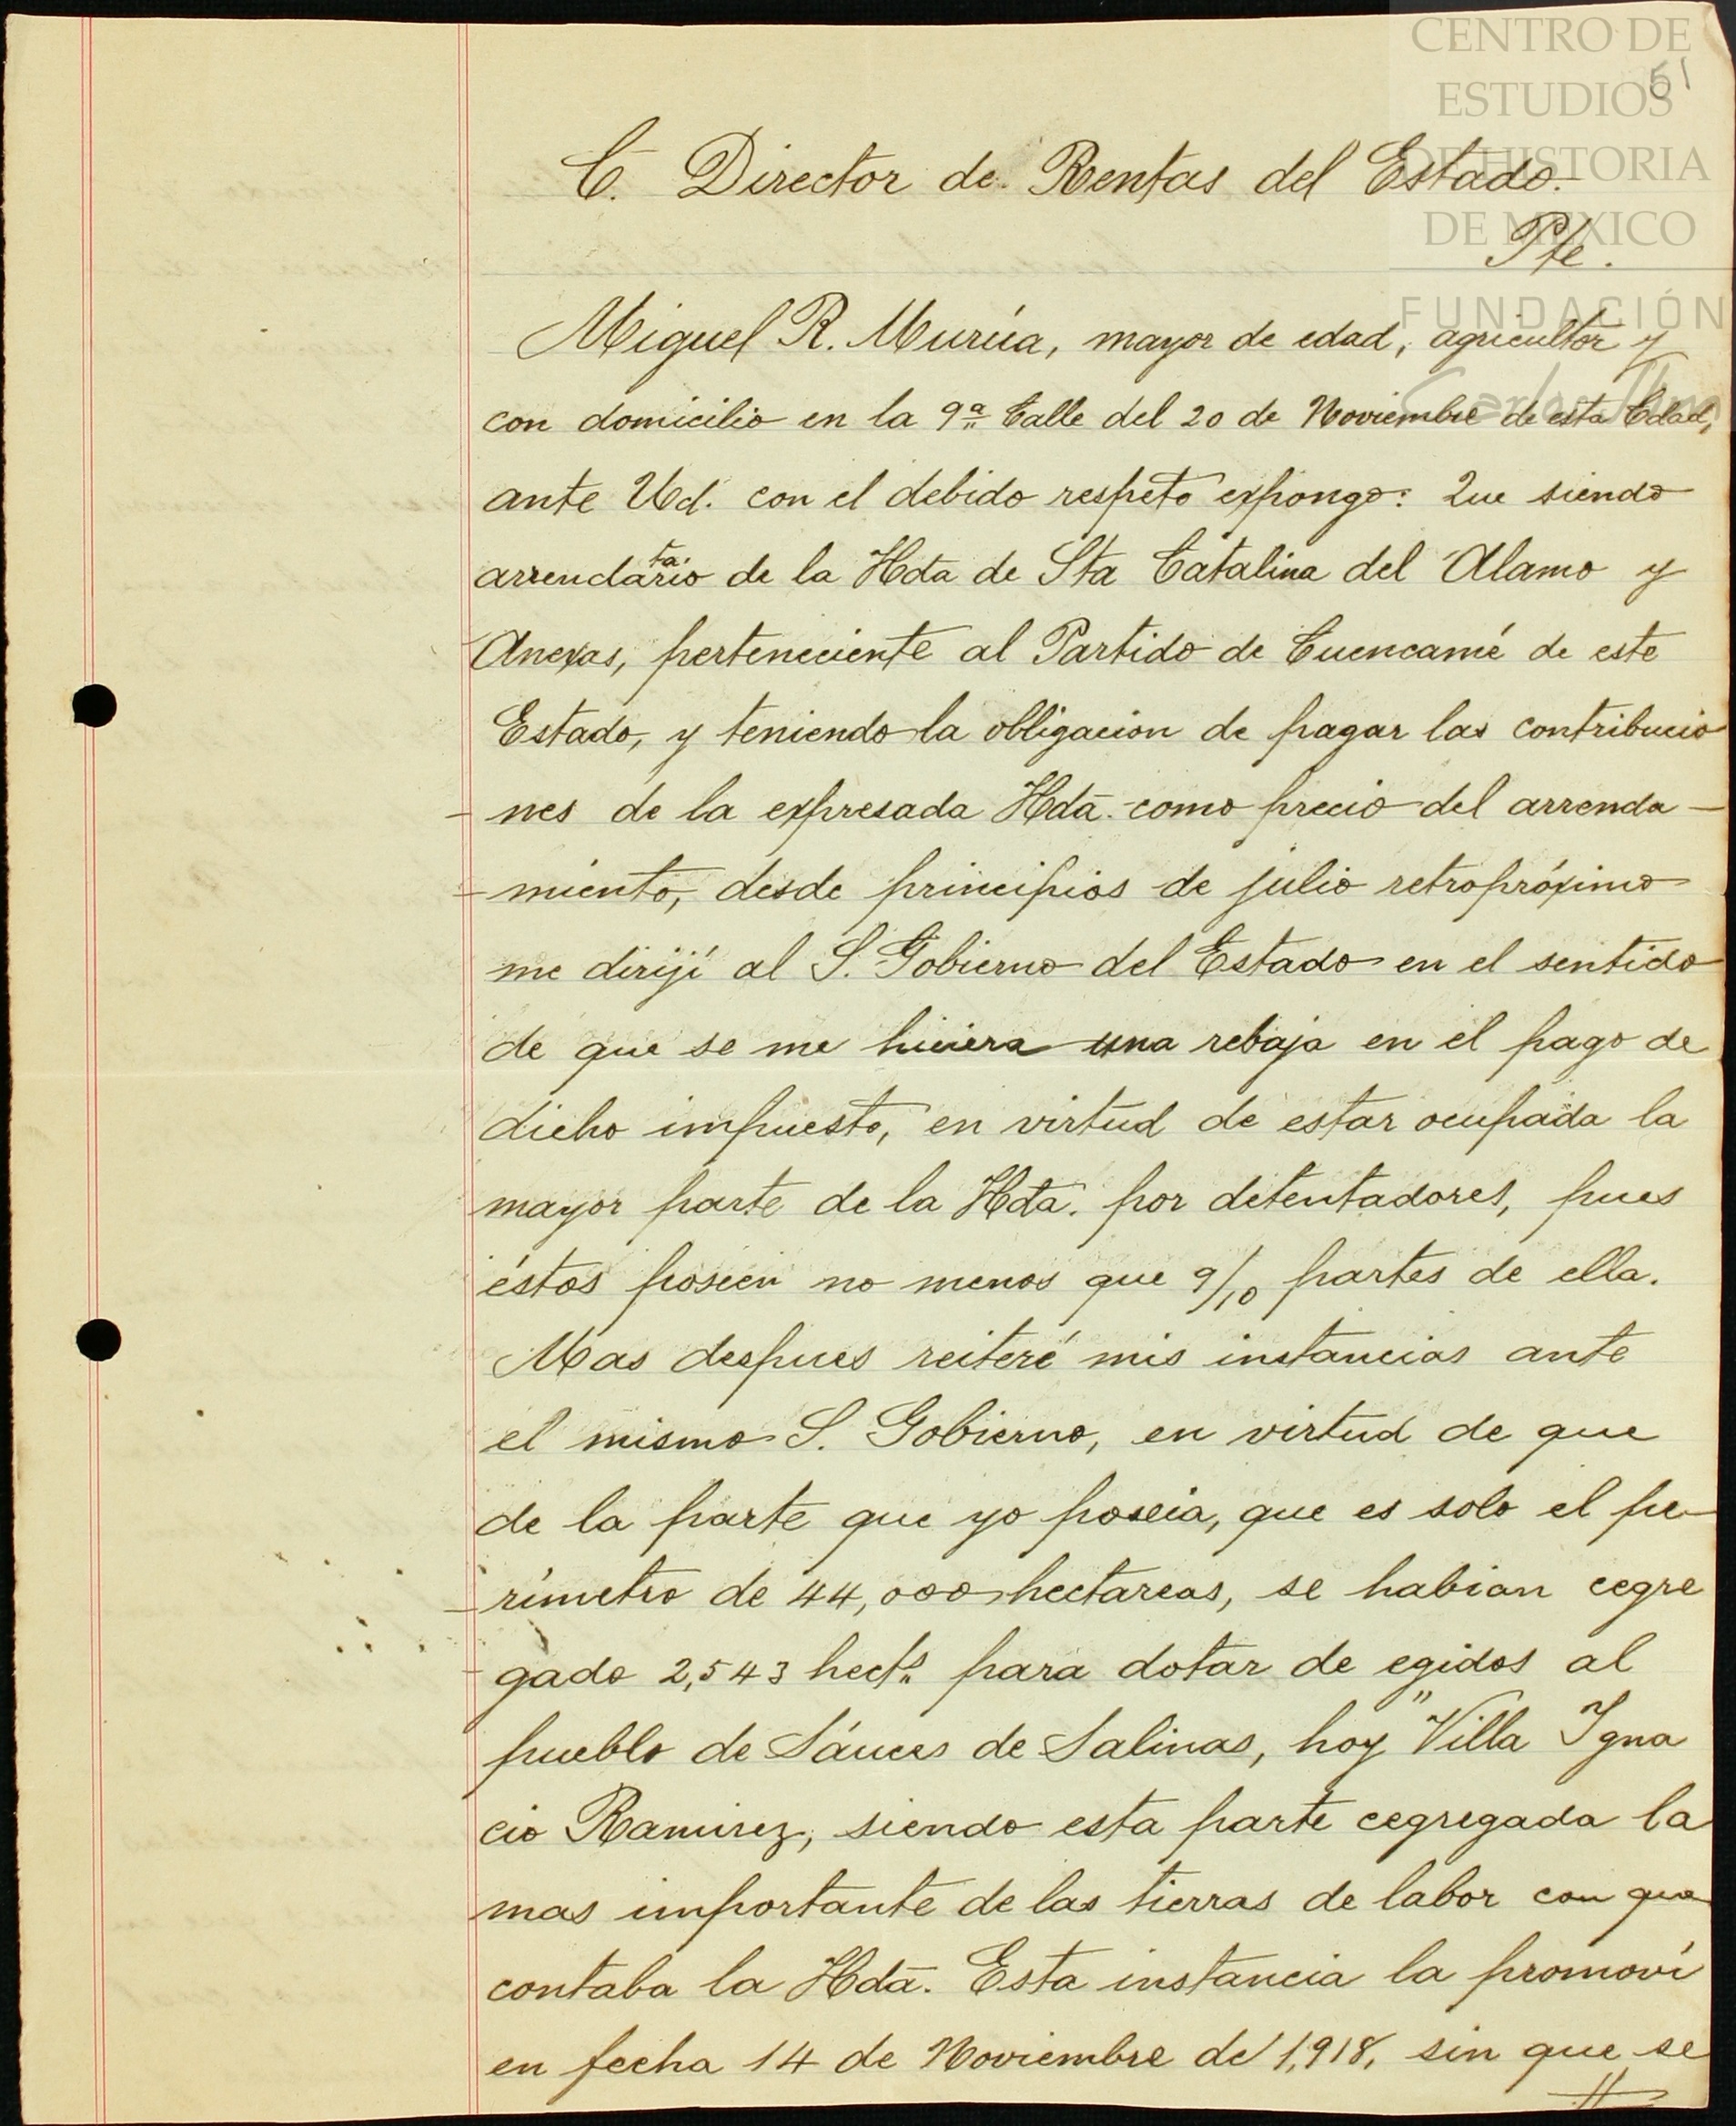 CENTRO DE
ESTUDIOS
DE HISTORIA
DE MEXICO
FUNDACIÓN
51
C. Director de Rentas del Estado.
Pte.
Miguel R. Murúa, mayor de edad, agricultor y
con domicilio en la 9ª Calle del 20 de Noviembre de esta Cdad,
ante Ud. con el debido respeto expongo: Que siendo
arrendatario de la Hda de Sta Catalina del Alamo y
Anexas, perteneciente al Partido de Cuencamé de este
Estado, y teniendo la obligacion de pagar las contribucio
nes de la expresada Hda. como precio del arrenda-
miento, desde principios de julio retropróximo
me dirijí al S. Gobierno del Estado en el sentido
de que se me hiciera una rebaja en el pago de
dicho impuesto, en virtud de estar ocupada la
mayor parte de la Hda. por detentadores, pues
éstos poseen no menos que 9/10 partes de ella.
Mas despues reiteré mis instancias ante
el mismo S. Gobierno, en virtud de que
de la parte que yo poseia, que es solo el pe-
rímetro de 44,000 hectareas, se habian cegre
gado 2,543 hects. para dotar de egidos al
pueblo de Sáuces de Salinas, hoy "Villa Igna
cio Ramirez, siendo esta parte cegregada la
mas importante de las tierras de labor con que
contaba la Hda. Esta instancia la promoví
en fecha 14 de Noviembre de 1,918, sin que se